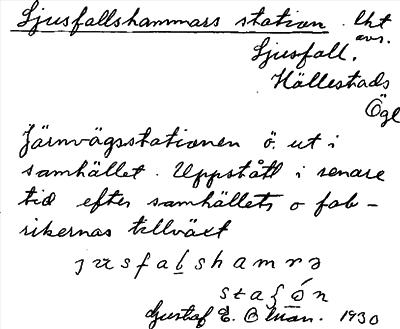 Ljusfallshammars station. lht
avs.
Ljusfall.
Hällestads
Ögl
Järnvägsstationen ö. ut i
samhället. Uppstått i senare
tid efter samhällets o fab-
rikernas tillväxt
sfabshamrə
Gustaf E. 1930